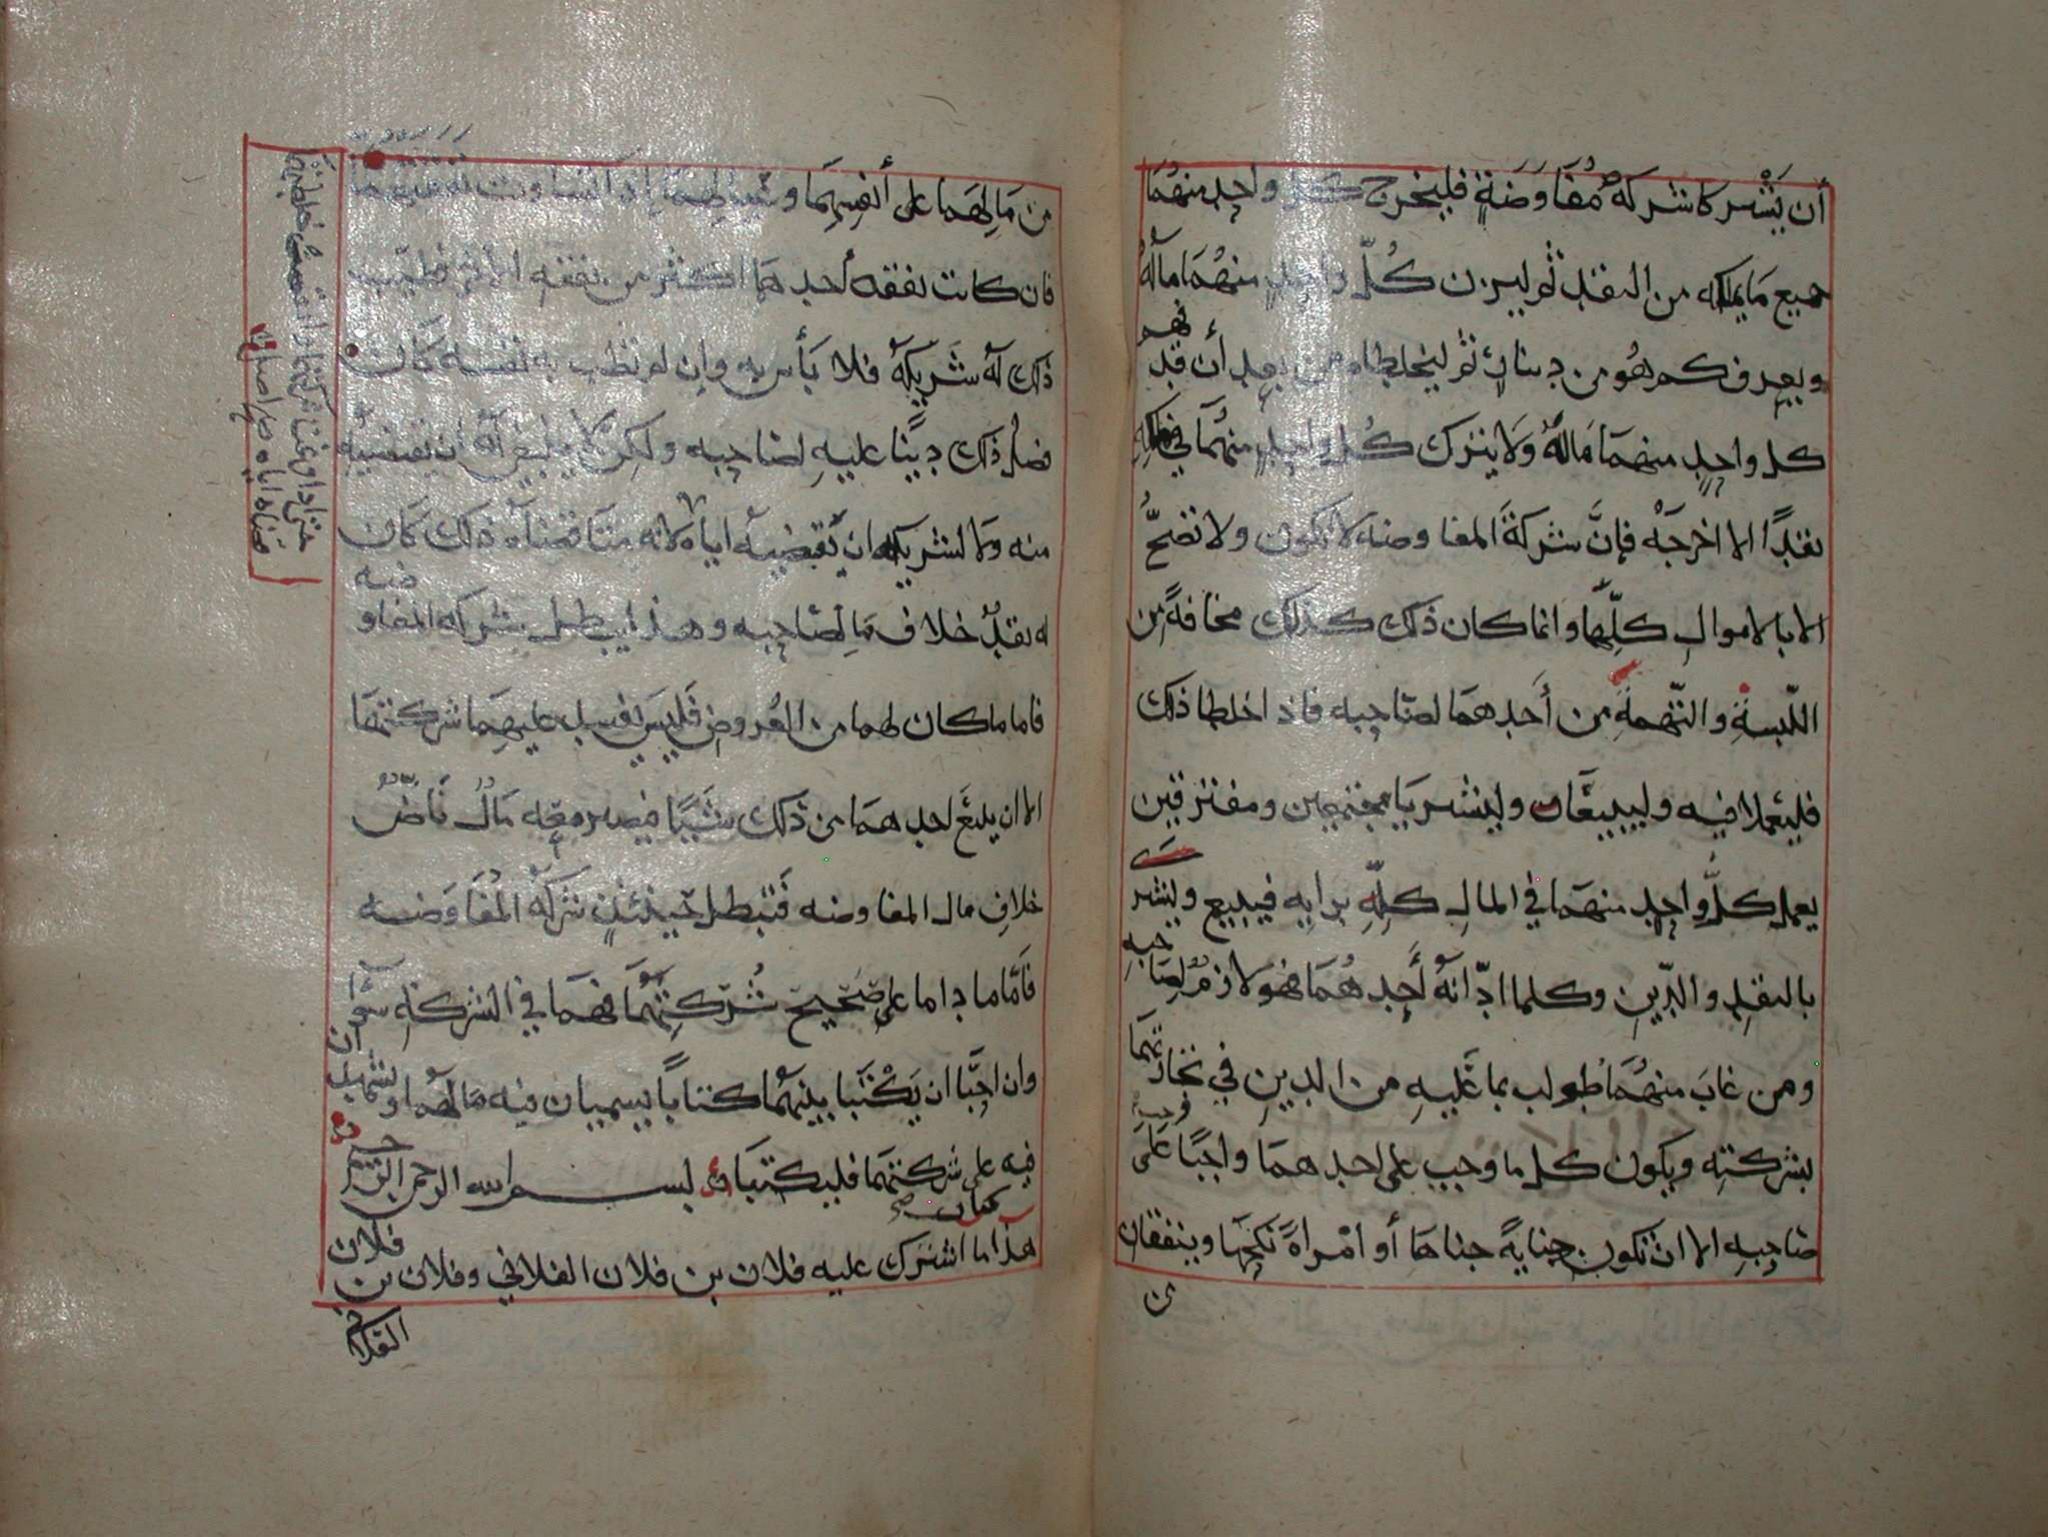 أن يَشْتركا شركة مُفَاوَضَةٍ فليخرج كل واحدٍ منهُمَا
جميع مَا يملكه من النقد ثم ليزن كُلّ واحدٍ منهُمَا مالَهُ
ويعرف كم هُو من دينارٍ ثم ليخلطاه من بعد أن قد فهم
كل واحدٍ منهمَا مَالهُ وَلا يترك كُل واحدٍ منهُمَا في ملكه
نقدًا الا اخرجَهْ فإنَّ شركَةَ المفاوضه لا تكون ولا تصحُّ
الا بالاموالِ كلِّها وانما كان ذلك كذلك مخافةً من
اللّبسةِ والتّهمةِ من أَحدهمَا لصَاحبه فاذا خلطا ذلك
فليعملا فيه وليبيعَان وليشتريَا مجتمعين ومفترقين
يعمل كلُّ واحدٍ منهمَا في المالِ كلِّهِ برايه فيبيع ويشتر
بالنقدِ والدّينِ وكلما ادّانَهُ أَحدهُمَا فهو لازمٌ لصَاحبهِ
ومن غابَ منهُمَا طولب بما عَليهِ من الدينِ في تجارتهمَا
بشركتِه ويكون كل ما وجب على احدهمَا واجبًا عَلَى
صَاحبهِ الا ان تكون جنايةً جناهَا أو امْراةً نكحَهَا وينفقان
من مَالِهمَا على أنفسِهمَا وعيالِهمَا إذا تساوت
فان كانت نفقه أحدهمَا اكثر من نفقه الآخر فطيّب
ذلك لَهُ شَريكهُ فلا بَأس به وان لم تطب به نفسه كَانَ
فضلُ ذلك دينًا عليهِ لصَاحبه ولكن لا ينبغي لَهُ أن يقتضيَهُ
منه وَلا لشريكه ان يُقضيهُ اياه لانه متَا قضَاه ذلك كَان
له نقدٌ خلاف مَالِ صَاحبه وهذا يبطل شركه المفاوضه
فاما ما كان لهما من العُروضِ فَليسَ يفسد عليهِمَا شركتهمَا
الا ان يبيعَ احدهمَا من ذلك شَيئًا فيصير معَه مَالٌ نَاضٌّ
خلافِ مال المفاوضه فَتبطل حينئذٍ شركةُ المُفَاوَضه
فَأمّا ما دامَا على صَحيح شركتِهمَا فهمَا في الشركةِ سَوآ
وان احبَّا ان يَكْتبَا بينهُمَا كتابًا يسميان فيه مَالهُمَا ويشهدان
فيه على شركتهمَا فليكتبَا بسم الله الرحمن الرحيم
كتاب صح
هذا ما اشترك عليه فلان بن فلان الفلاني وفلان بن فلان
الفلاني